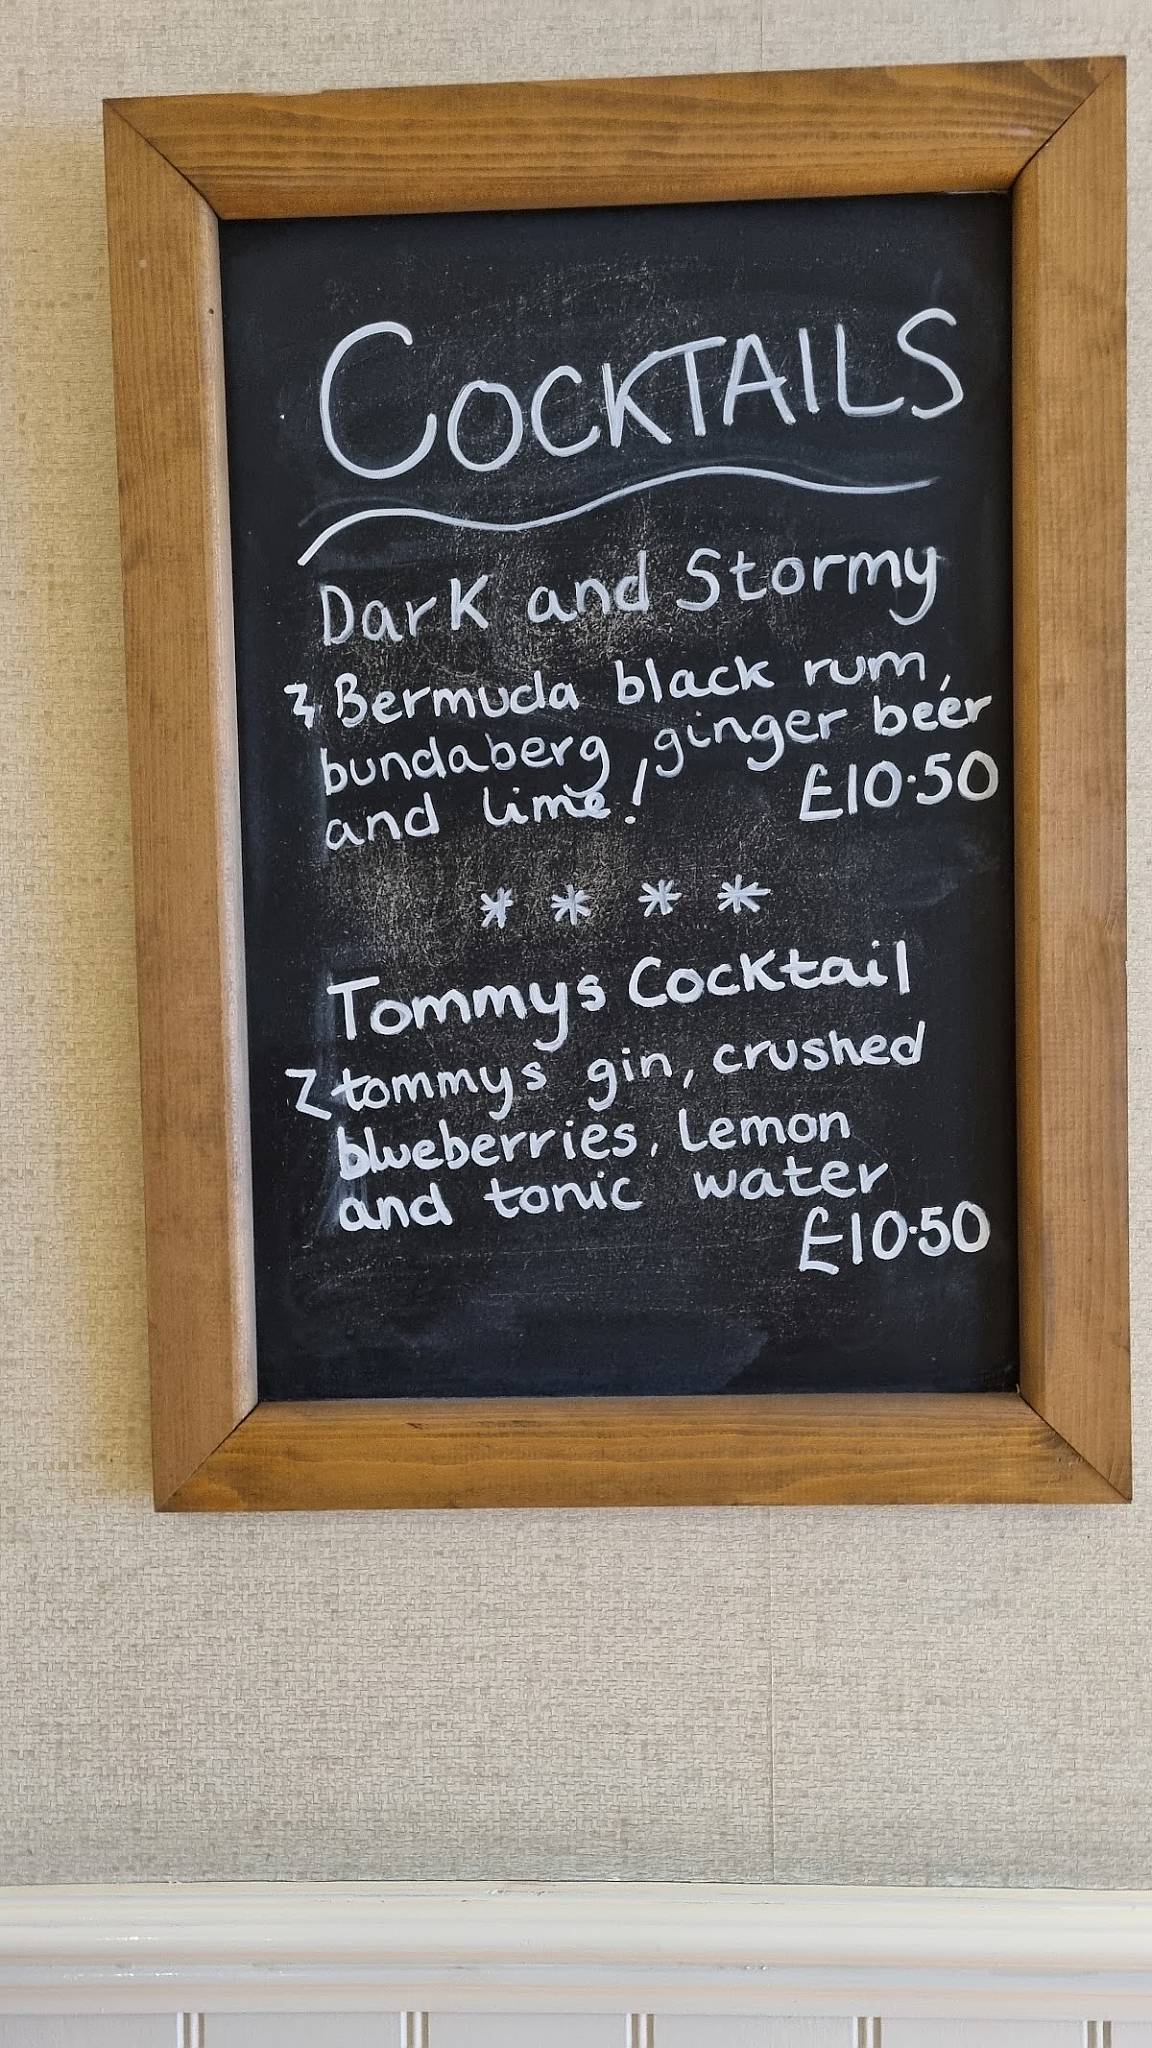 COCKTAILS
Dark and Stormy
Bermuda black rum,
bundaberg ginger beer
and lime! £10.50
* * * *
Tommys Cocktail
tommys gin, crushed
blueberries, lemon
and tonic water
£10.50